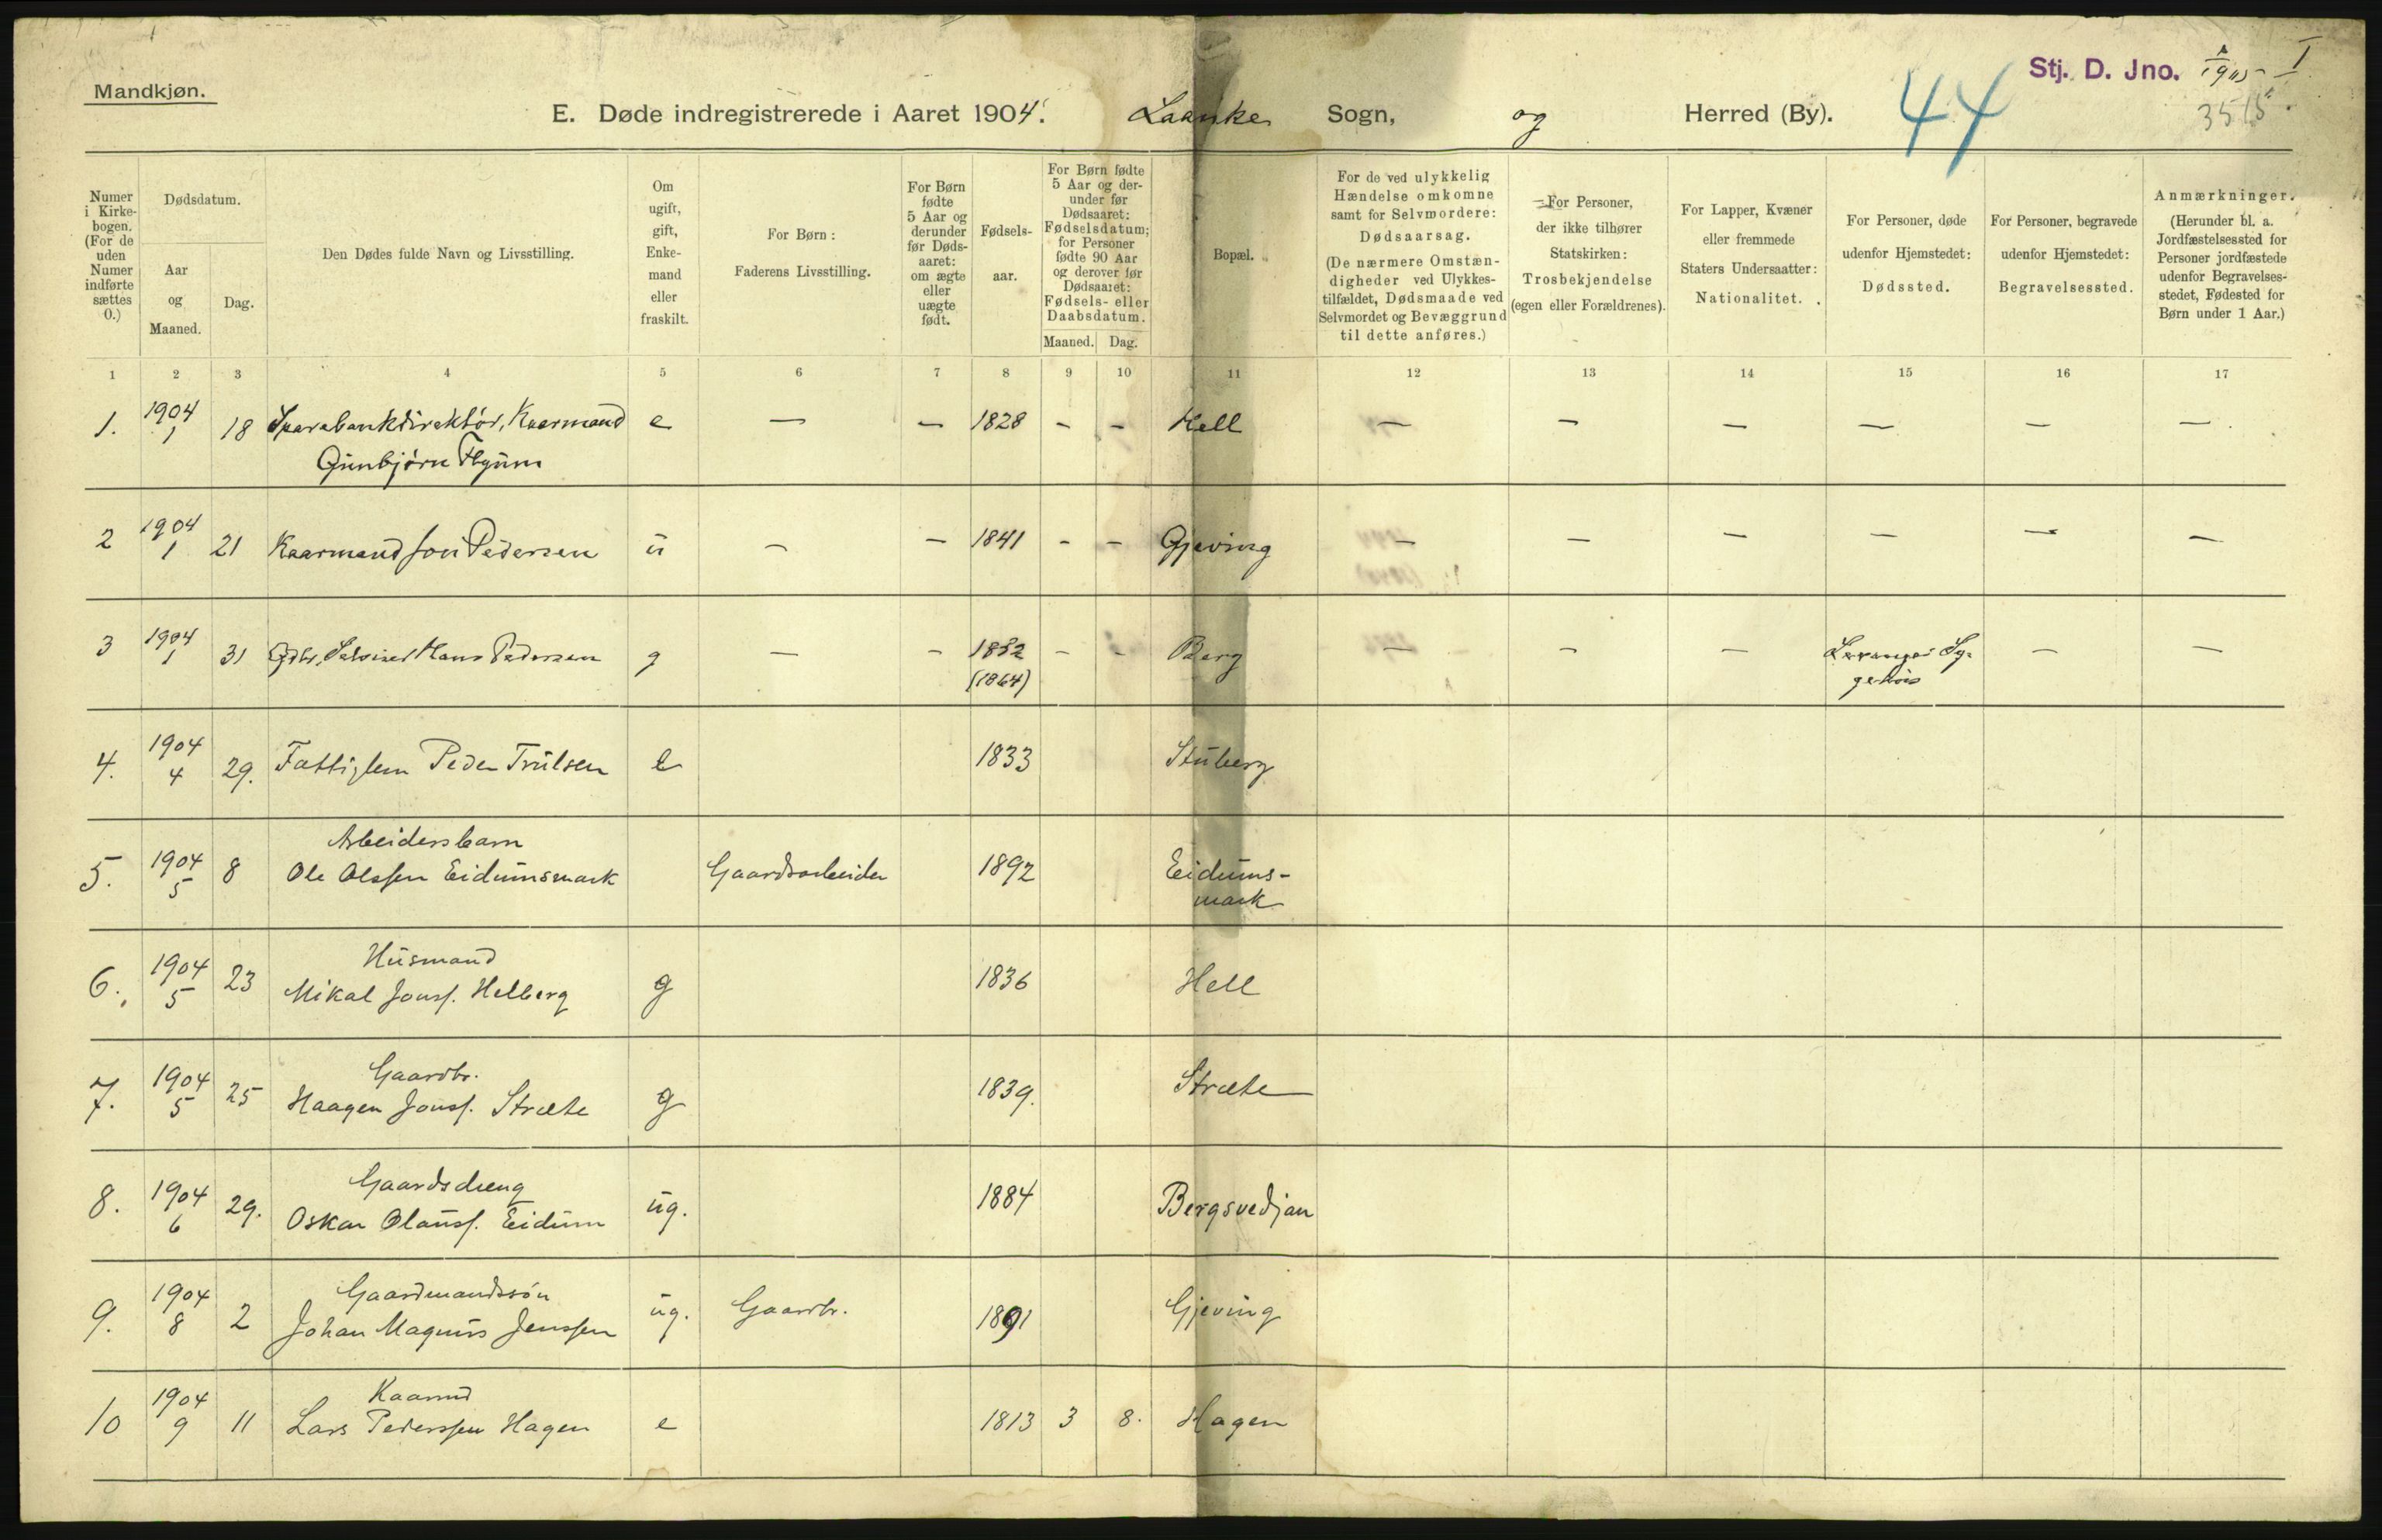 Mandkjøn.
Stj. D. Jno.
I
3515
44
E. Døde indregistrerede i Aaret 1904. Laanke Sogn, og Herred (By).
Numer i Kirkebogen. (For de uden Numer indførte sættes 0.)
Dødsdatum.
Aar og Maaned.
Dag.
Den Dødes fulde Navn og Livsstilling.
Om ugift, gift, Enkemand eller fraskilt.
For Børn: Faderens Livsstilling.
For Børn fødte 5 Aar og derunder før Dødsaaret: om ægte eller uægte født.
Fødselsaar.
For Børn fødte 5 Aar og derunder før Dødsaaret: Fødselsdatum; for Personer fødte 90 Aar og derover før Dødsaaret: Fødsels- eller Daabsdatum.
Maaned. Dag.
Bopæl.
For de ved ulykkelig Hændelse omkomne samt for Selvmordere: Dødsaarsag. (De nærmere Omstændigheder ved Ulykkestilfældet, Dødsmaade ved Selvmordet og Bevæggrund til dette anføres.)
For Personer, der ikke tilhører Statskirken: Trosbekjendelse (egen eller Forældrenes).
For Lapper, Kvæner eller fremmede Staters Undersaatter: Nationalitet.
For Personer, døde udenfor Hjemstedet: Dødssted.
For Personer, begravede udenfor Hjemstedet: Begravelsessted.
Anmærkninger. (Herunder bl. a. Jordfæstelsessted for Personer jordfæstede udenfor Begravelsesstedet, Fødested for Børn under 1 Aar.)
1 2 3 4 5 6 7 8 9 10 11 12 13 14 15 16 17
1. 1904 1 18 Sparebankdirektør, Kaarmand e — — 1828 - - Hell — — — — — —
Gunbjørn Flyum
2 1904 1 21 Kaarmand Jon Pedersen u — — 1841 - - Gjeving — — — — — —
3 1904 1 31 Gbr., Selveier Hans Pedersen g — — 1852 - - Berg — — — Levanger Sy= — —
(1864) gehus
4. 1904 4 29. Fattiglem Peder Trulsen e 1833 Stuberg
Arbeidersbarn
5. 1904 5 8 Ole Olssen Eidumsmark Gaardsarbeider 1892 Eidums-
mark
Husmand
6. 1904 5 23 Mikal Jonss. Helberg g 1836 Hell
Gaardbr.
7. 1904 5 25 Haagen Jonss. Stræte g 1839. Stræte
Gaardsdreng
8. 1904 6 29. Oskar Olauss. Eidum ug. 1884 Bergsvedjan
Gaardmandssøn
9. 1904 8 2 Johan Magnus Jenssen ug. Gaardbr. 1891 Gjeving
Kaarmd
10 1904 9 11 Lars Pederssen Hagen e 1813 3 8. Hagen